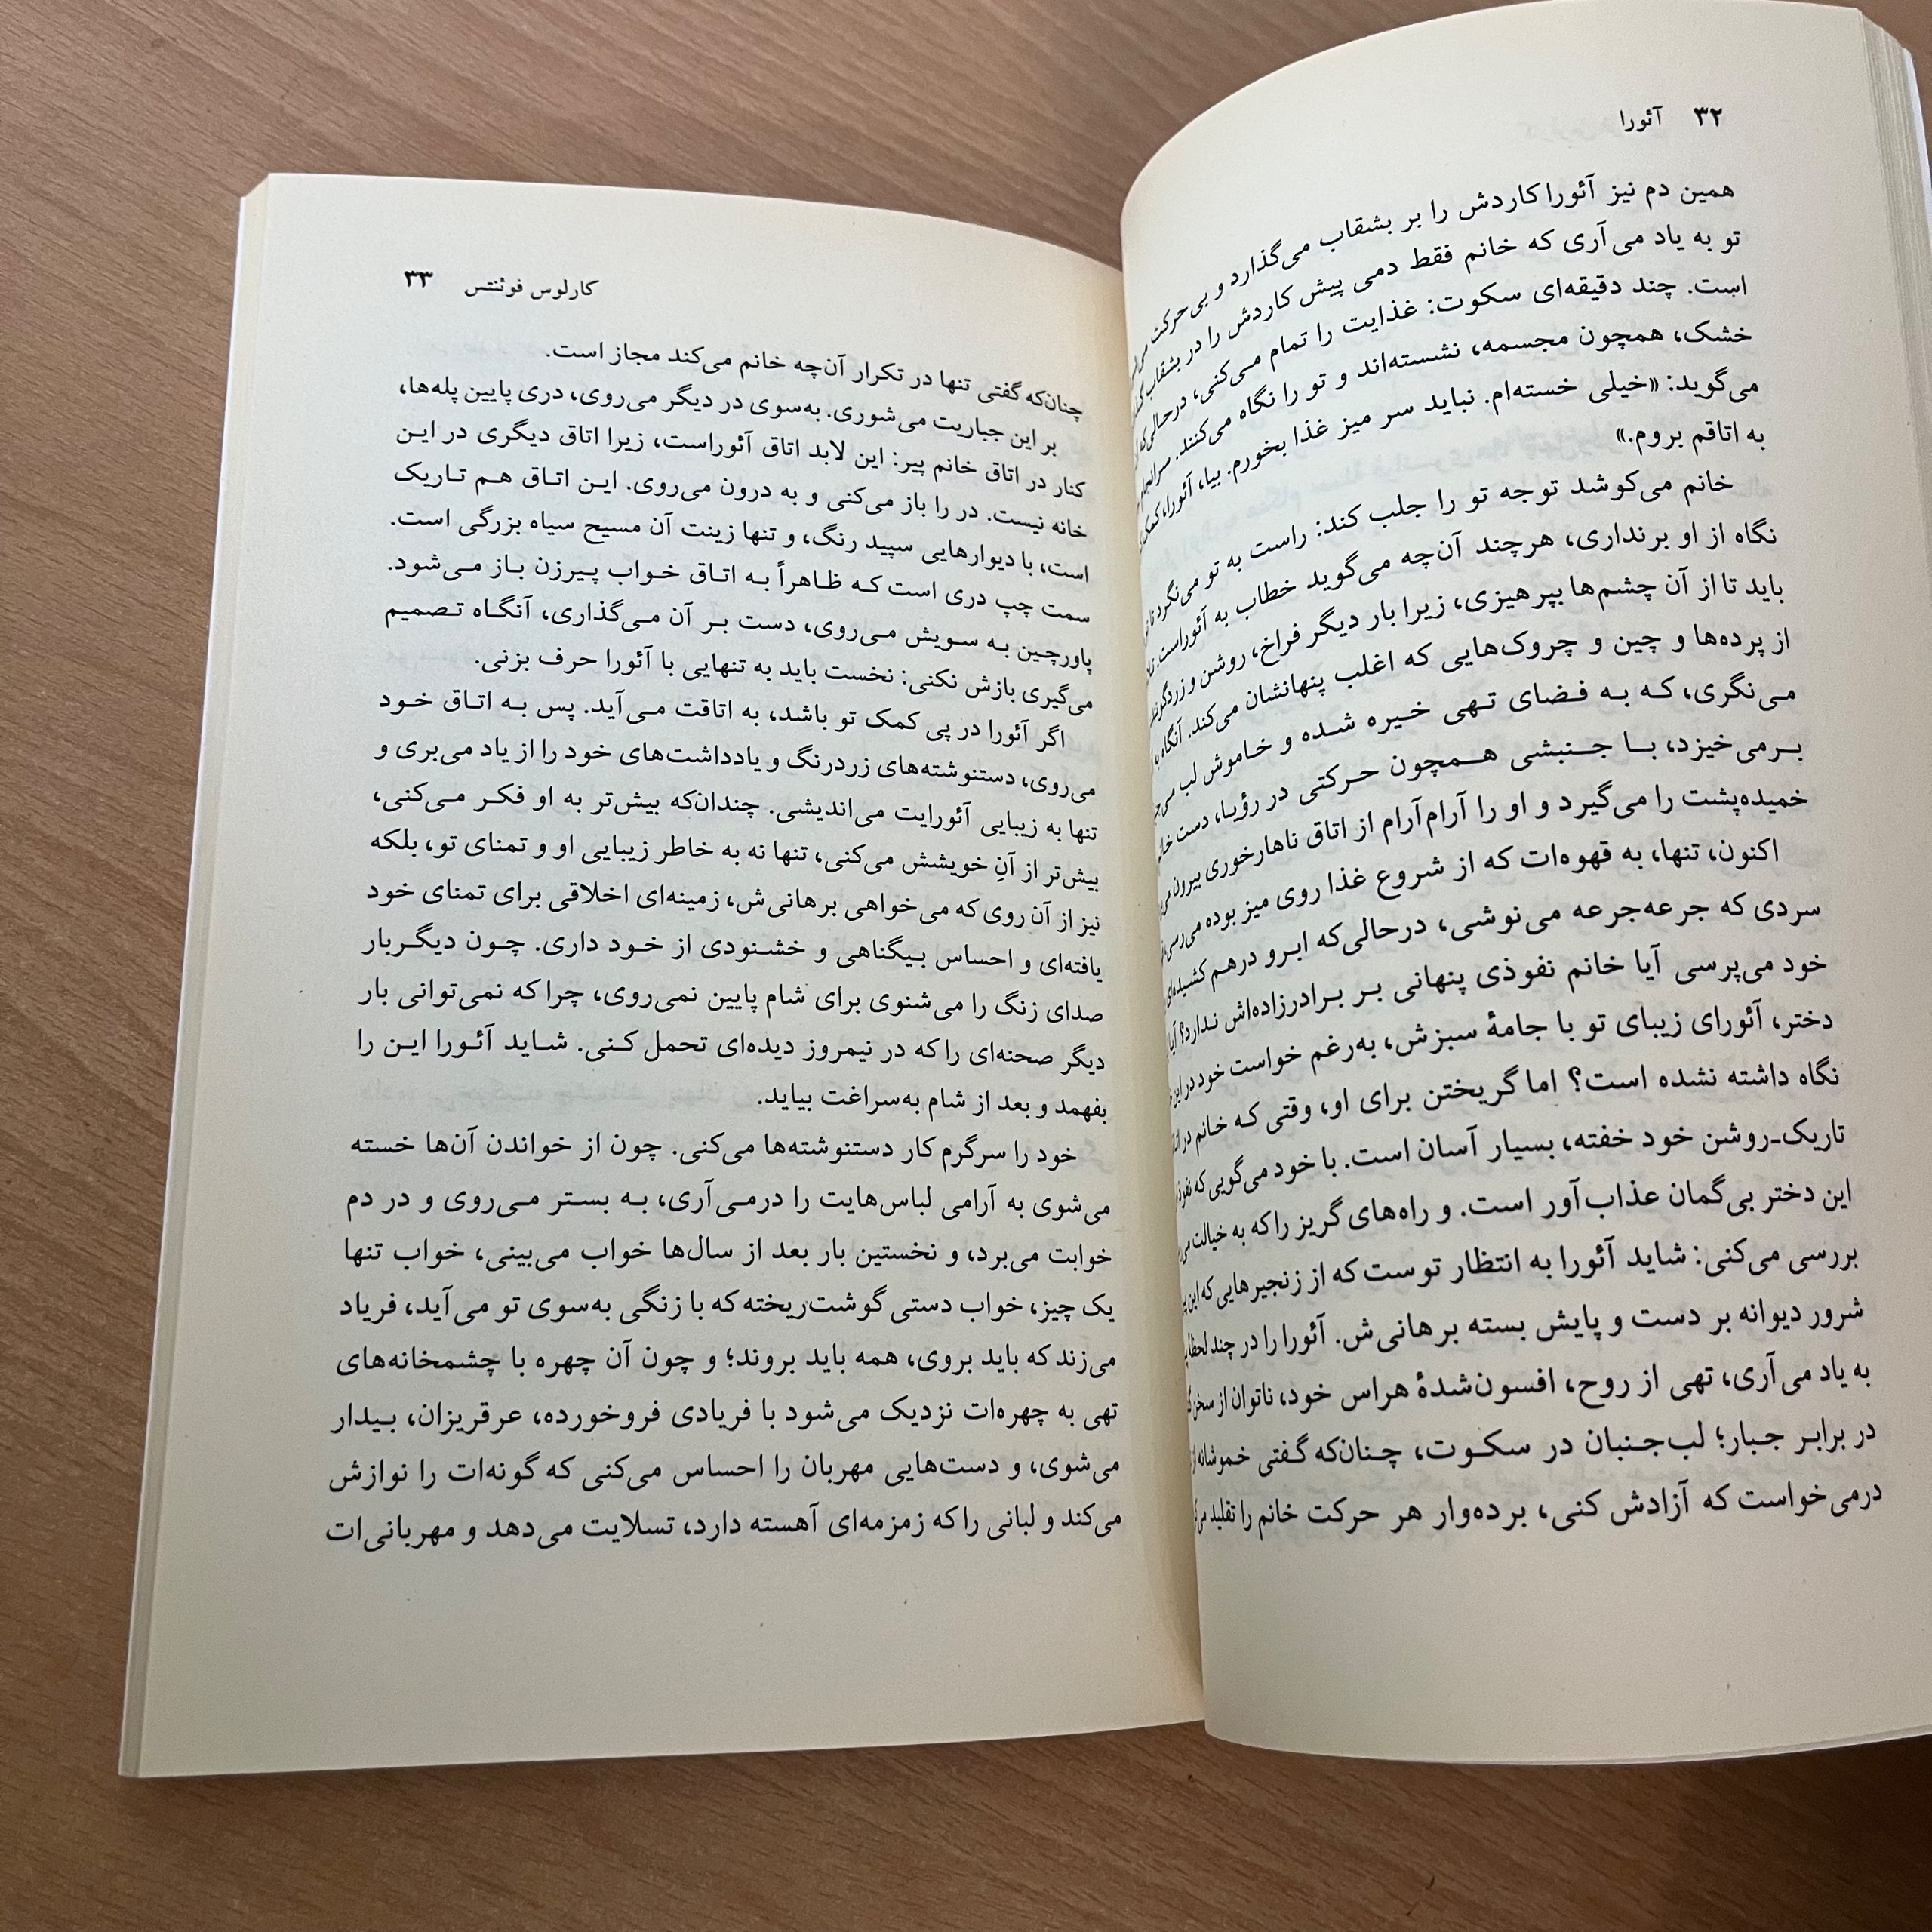 ۳۲ آئورا
همین دم نیز آئورا کاردش را بر بشقاب می‌گذارد و بی‌حرکت
تو به یاد می‌آری که خانم فقط دمی پیش کاردش را در بشقاب
است. چند دقیقه‌ای سکوت: غذایت را تمام می‌کنی، درحالی‌که
خشک، همچون مجسمه، نشسته‌اند و تو را نگاه می‌کنند. سرانجام
می‌گوید: «خیلی خسته‌ام. نباید سر میز غذا بخورم. بیا، آئورا، کمک
به اتاقم بروم.»
خانم می‌کوشد توجه تو را جلب کند: راست به تو می‌نگرد تا
نگاه از او برنداری، هرچند آن‌چه می‌گوید خطاب به آئوراست.
باید تا از آن چشم‌ها بپرهیزی، زیرا بار دیگر فراخ، روشن و زردگونه
از پرده‌ها و چین و چروک‌هایی که اغلب پنهانشان می‌کند. آنگاه
می‌نگری، که به فضای تهی خیره شده و خاموش لب
برمی‌خیزد، با جنبشی همچون حرکتی در رؤیا، دست
خمیده‌پشت را می‌گیرد و او را آرام‌آرام از اتاق ناهارخوری بیرون
اکنون، تنها، به قهوه‌ات که از شروع غذا روی میز بوده می‌رسی،
سردی که جرعه‌جرعه می‌نوشی، درحالی‌که ابرو درهم کشیده‌ای
خود می‌پرسی آیا خانم نفوذی پنهانی بر برادرزاده‌اش ندارد؟ آیا
دختر، آئورای زیبای تو با جامهٔ سبزش، به‌رغم خواست خود در این
نگاه داشته نشده است؟ اما گریختن برای او، وقتی که خانم در
تاریک‌ـروشن خود خفته، بسیار آسان است. با خود می‌گویی که
این دختر بی‌گمان عذاب‌آور است. و راه‌های گریز را که به خیالت
بررسی می‌کنی: شاید آئورا به انتظار توست که از زنجیرهایی که این
شرور دیوانه بر دست و پایش بسته برهانی‌ش. آئورا را در چند لحظهٔ
به یاد می‌آری، تهی از روح، افسون‌شدهٔ هراس خود، ناتوان از سخن
در برابر جبار؛ لب‌جنبان در سکوت، چنان‌که گفتی خموشانه
درمی‌خواست که آزادش کنی، برده‌وار هر حرکت خانم را تقلید
کارلوس فوئنتس ۳۳
چنان‌که گفتی تنها در تکرار آن‌چه خانم می‌کند مجاز است.
بر این جباریت می‌شوری. به‌سوی در دیگر می‌روی، دری پایین پله‌ها،
کنار در اتاق خانم پیر: این لابد اتاق آئوراست، زیرا اتاق دیگری در این
خانه نیست. در را باز می‌کنی و به درون می‌روی. این اتاق هم تاریک
است، با دیوارهایی سپید رنگ، و تنها زینت آن مسیح سیاه بزرگی است.
سمت چپ دری است که ظاهراً به اتاق خواب پیرزن باز می‌شود.
پاورچین به سویش می‌روی، دست بر آن می‌گذاری، آنگاه تصمیم
می‌گیری بازش نکنی: نخست باید به تنهایی با آئورا حرف بزنی.
اگر آئورا در پی کمک تو باشد، به اتاقت می‌آید. پس به اتاق خود
می‌روی، دستنوشته‌های زردرنگ و یادداشت‌های خود را از یاد می‌بری و
تنها به زیبایی آئورایت می‌اندیشی. چندان‌که بیش‌تر به او فکر می‌کنی،
بیش‌تر از آنِ خویشش می‌کنی، تنها نه به خاطر زیبایی او و تمنای تو، بلکه
نیز از آن روی که می‌خواهی برهانی‌ش، زمینه‌ای اخلاقی برای تمنای خود
یافته‌ای و احساس بیگناهی و خشنودی از خود داری. چون دیگربار
صدای زنگ را می‌شنوی برای شام پایین نمی‌روی، چرا که نمی‌توانی بار
دیگر صحنه‌ای را که در نیمروز دیده‌ای تحمل کنی. شاید آئورا این را
بفهمد و بعد از شام به‌سراغت بیاید.
خود را سرگرم کار دستنوشته‌ها می‌کنی. چون از خواندن آن‌ها خسته
می‌شوی به آرامی لباس‌هایت را درمی‌آری، به بستر می‌روی و در دم
خوابت می‌برد، و نخستین بار بعد از سال‌ها خواب می‌بینی، خواب تنها
یک چیز، خواب دستی گوشت‌ریخته که با زنگی به‌سوی تو می‌آید، فریاد
می‌زند که باید بروی، همه باید بروند؛ و چون آن چهره با چشمخانه‌های
تهی به چهره‌ات نزدیک می‌شود با فریادی فروخورده، عرقریزان، بیدار
می‌شوی، و دست‌هایی مهربان را احساس می‌کنی که گونه‌ات را نوازش
می‌کند و لبانی را که زمزمه‌ای آهسته دارد، تسلایت می‌دهد و مهربانی‌ات